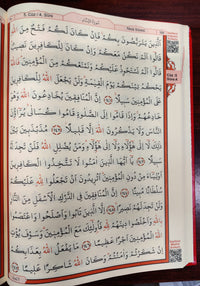 5. Cüz / 4. Sûre سورة النساء Nisâ Sûresi
الَّذِينَ يَتَرَبَّصُونَ بِكُمْ فَإِنْ كَانَ لَكُمْ فَتْحٌ مِنَ
اللّٰهِ قَالُوا أَلَمْ نَكُنْ مَعَكُمْ وَإِنْ كَانَ لِلْكَافِرِينَ نَصِيبٌ
قَالُوا أَلَمْ نَسْتَحْوِذْ عَلَيْكُمْ وَنَمْنَعْكُمْ مِنَ الْمُؤْمِنِينَ فَاللّٰهُ
يَحْكُمُ بَيْنَكُمْ يَوْمَ الْقِيٰمَةِ وَلَنْ يَجْعَلَ اللّٰهُ لِلْكَافِرِينَ
عَلَى الْمُؤْمِنِينَ سَبِيلًا ﴿١٤١﴾ إِنَّ الْمُنَافِقِينَ يُخَادِعُونَ اللّٰهَ
وَهُوَ خَادِعُهُمْ وَإِذَا قَامُوا إِلَى الصَّلٰوةِ قَامُوا كُسَالَى يُرَاؤُنَ
النَّاسَ وَلَا يَذْكُرُونَ اللّٰهَ إِلَّا قَلِيلًا ﴿١٤٢﴾ مُذَبْذَبِينَ بَيْنَ
ذٰلِكَ لَا إِلَى هٰؤُلَاءِ وَلَا إِلَى هٰؤُلَاءِ وَمَنْ يُضْلِلِ اللّٰهُ فَلَنْ تَجِدَ لَهُ
سَبِيلًا ﴿١٤٣﴾ يَا أَيُّهَا الَّذِينَ آمَنُوا لَا تَتَّخِذُوا الْكَافِرِينَ
أَوْلِيَاءَ مِنْ دُونِ الْمُؤْمِنِينَ أَتُرِيدُونَ أَنْ تَجْعَلُوا لِلّٰهِ عَلَيْكُمْ
سُلْطَانًا مُبِينًا ﴿١٤٤﴾ إِنَّ الْمُنَافِقِينَ فِي الدَّرْكِ الْأَسْفَلِ مِنَ النَّارِ
وَلَنْ تَجِدَ لَهُمْ نَصِيرًا ﴿١٤٥﴾ إِلَّا الَّذِينَ تَابُوا وَأَصْلَحُوا وَاعْتَصَمُوا
بِاللّٰهِ وَأَخْلَصُوا دِينَهُمْ لِلّٰهِ فَأُولٰئِكَ مَعَ الْمُؤْمِنِينَ وَسَوْفَ يُؤْتِ
اللّٰهُ الْمُؤْمِنِينَ أَجْرًا عَظِيمًا ﴿١٤٦﴾ مَا يَفْعَلُ اللّٰهُ بِعَذَابِكُمْ
إِنْ شَكَرْتُمْ وَآمَنْتُمْ وَكَانَ اللّٰهُ شَاكِرًا عَلِيمًا ﴿١٤٧﴾